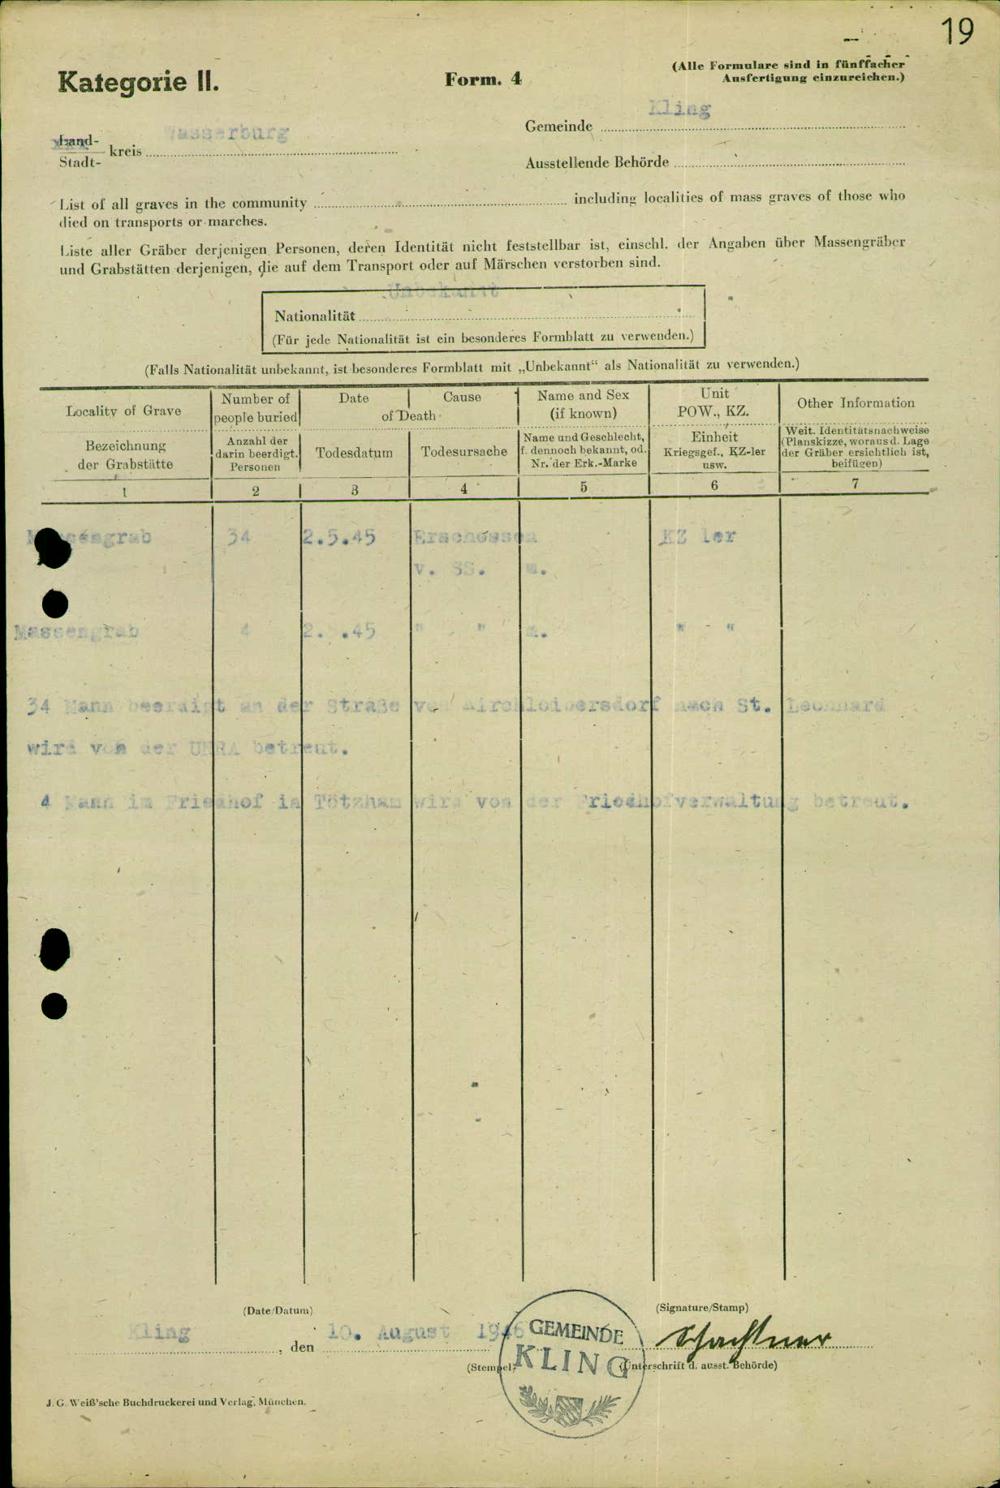 19
Kategorie II.
Form. 4
(Alle Formulare sind in fünffacher
Ausfertigung einzureichen.)
Gemeinde Kling
Land-
Stadt- kreis Wasserburg
Ausstellende Behörde
List of all graves in the community including localities of mass graves of those who
died on transports or marches.
Liste aller Gräber derjenigen Personen, deren Identität nicht feststellbar ist, einschl. der Angaben über Massengräber
und Grabstätten derjenigen, die auf dem Transport oder auf Märschen verstorben sind.
Unbekannt
Nationalität
(Für jede Nationalität ist ein besonderes Formblatt zu verwenden.)
(Falls Nationalität unbekannt, ist besonderes Formblatt mit „Unbekannt“ als Nationalität zu verwenden.)
Locality of Grave
Bezeichnung
der Grabstätte
Number of
people buried
Anzahl der
darin beerdigt.
Personen
Date Cause
of Death
Todesdatum Todesursache
Name and Sex
(if known)
Name und Geschlecht,
f. dennoch bekannt, od.
Nr. der Erk.-Marke
Unit
POW., KZ.
Einheit
Kriegsgef., KZ-ler
usw.
Other Information
Weit. Identitätsnachweise
(Planskizze, woraus d. Lage
der Gräber ersichtlich ist,
beifügen)
1 2 3 4 5 6 7
Massengrab 34 2.5.45 Erschossen KZ ler
v. SS. m.
Massengrab 4 2. .45 " " m. " - "
34 Mann beerdigt an der Straße von Kirchloibersdorf nach St. Leonhard
wird von der UNRA betreut.
4 Mann im Friedhof in Tötzham wird von der Friedhofverwaltung betreut.
(Date/Datum)
(Signature/Stamp)
Kling, den 10. August 1946
GEMEINDE
KLING
Schachner
(Stempel)
(Unterschrift d. ausst. Behörde)
J. G. Weiß'sche Buchdruckerei und Verlag, München.